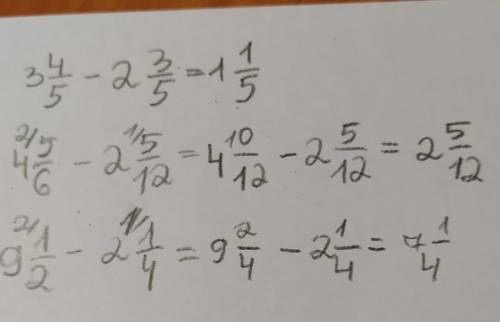 3 4/5 - 2 3/5 = 1 1/5
2/ 4 5/6 - 2 1/ 5/12 = 4 10/12 - 2 5/12 = 2 5/12
2/ 9 1/2 - 2 1/ 1/4 = 9 2/4 - 2 1/4 = 7 1/4